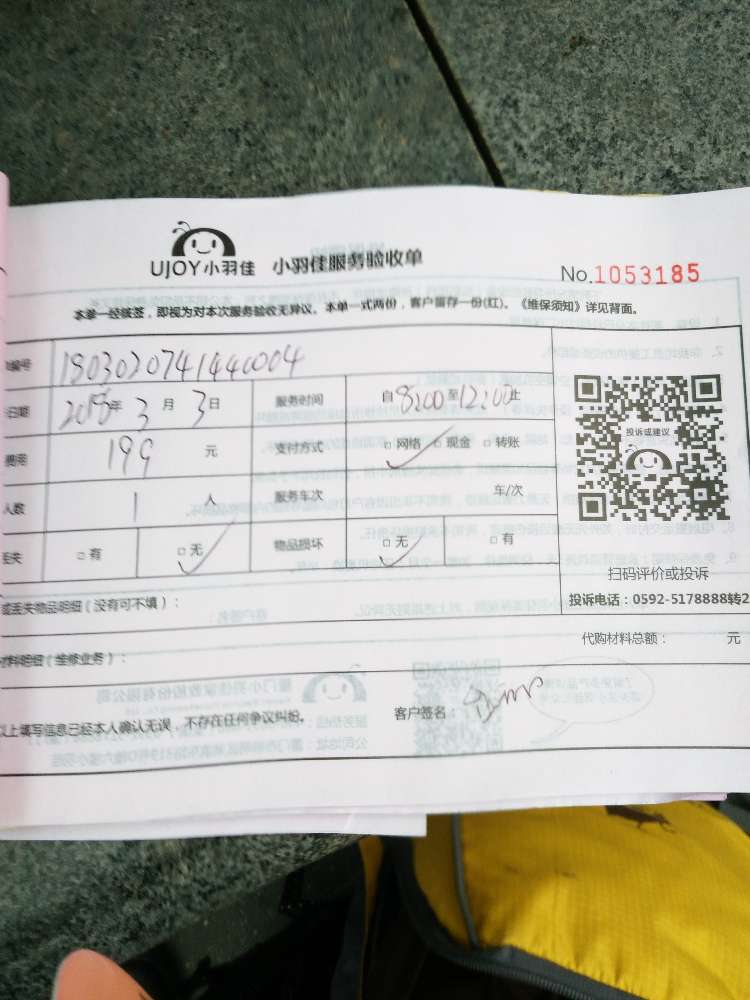 UJOY小羽佳 小羽佳服务验收单
No.1053185
本单一经核签，即视为对本次服务验收无异议。本单一式两份，客户留存一份(红)。《维保须知》详见背面。
编号 1803020741440004
日期 2018年 3月 3日 服务时间 自8:00至12:00止
费用 199 元 支付方式 □网络 □现金 □转账
人数 1 人 服务车次 车/次
丢失 □有 □无 物品损坏 □无 □有
投诉或建议
扫码评价或投诉
投诉电话：0592-5178888转2
或丢失物品明细（没有可不填）：
代购材料总额： 元
材料明细（维修业务）：
以上填写信息已经本人确认无误，不存在任何争议纠纷。 客户签名：